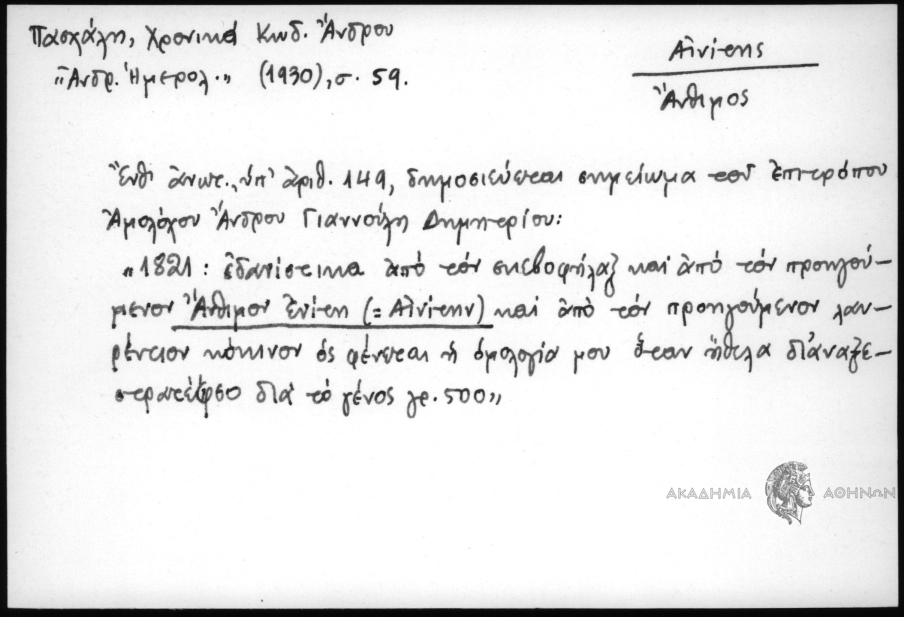 Πασχάλη, Χρονικά Κωδ. Ἄνδρου
Αἰνίτης
"Ἀνδρ. Ἡμερολ." (1930), σ. 59.
Ἄνθιμος
Ἔνθ' ἀνωτ., ὑπ' ἀριθ. 149, δημοσιεύεται σημείωμα τοῦ ἐπιτρόπου
Ἀμολόχου Ἄνδρου Γιαννούλη Δημητρίου:
"1821: ἐδανίστικα ἀπό τόν σκεβοφήλαξ καί ἀπό τόν προηγού-
μενον Ἄνθιμον ἐνίτη (= Αἰνίτην) καί ἀπό τόν προηγούμενον λαυ-
ρέντιον κόκινον ὁς φένεται ἡ ὁμολογία μου ὅταν ἤθελα διὰνα ξε-
διά τό γένος γρ. 500"
ΑΚΑΔΗΜΙΑ ΑΘΗΝΩΝ